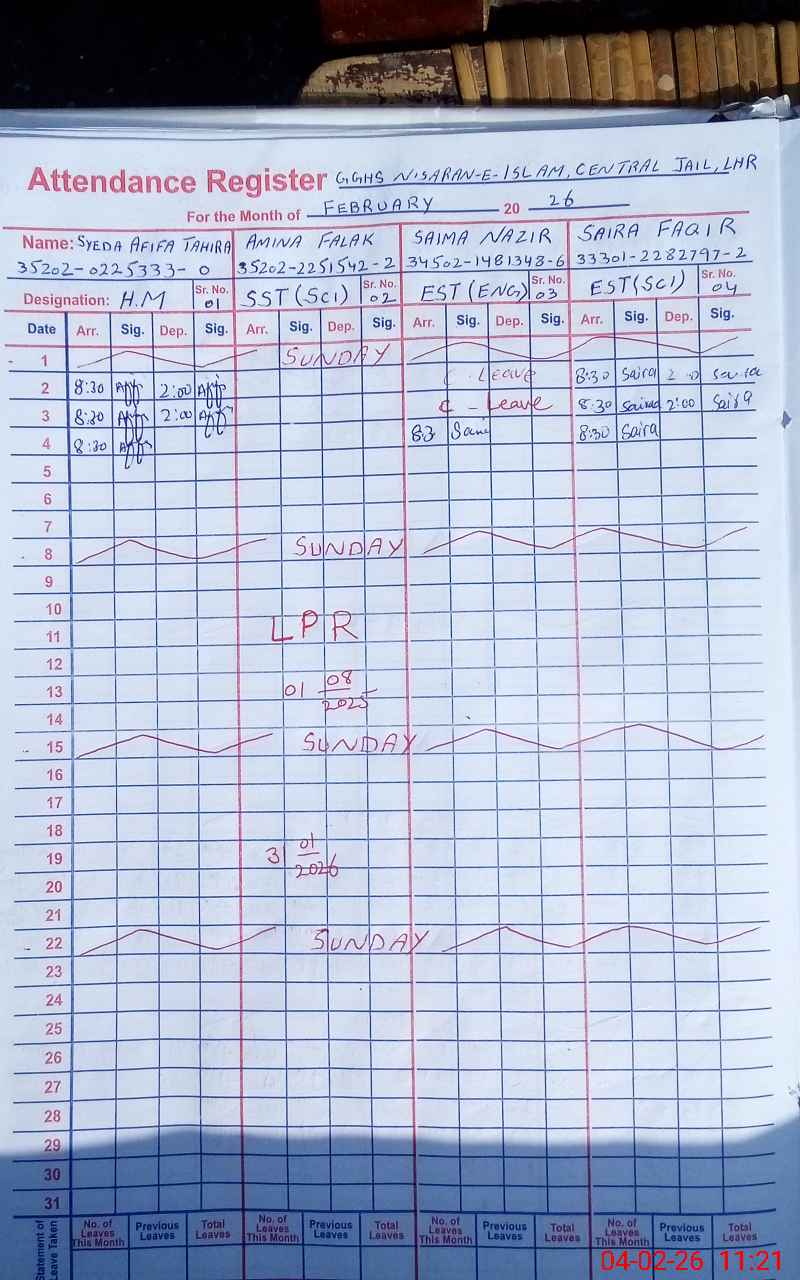 Attendance Register GGHS NISARAN-E-ISLAM, CENTRAL JAIL, LHR
For the Month of FEBRUARY 20 26
Name: SYEDA AFIFA TAHIRA AMINA FALAK SAIMA NAZIR SAIRA FAQIR
35202-0225333-0 35202-2251542-2 34502-1481348-6 33301-2282797-2
Designation: H.M Sr. No. 01 SST (SCI) Sr. No. 02 EST (ENG) Sr. No. 03 EST (SCI) Sr. No. 04
Date Arr. Sig. Dep. Sig. Arr. Sig. Dep. Sig. Arr. Sig. Dep. Sig. Arr. Sig. Dep. Sig.
1 SUNDAY
2 8:30 2:00 C. Leave 8:30 Saira Saira
3 8:30 2:00 C - Leave 8:30 Saira 2:00 Saira
4 8:30 8:3 8:30 Saira
5
6
7
8 SUNDAY
9
10
11 LPR
12
13 01 08 2025
14
15 SUNDAY
16
17
18
19 31 01 2026
20
21
22 SUNDAY
23
24
25
26
27
28
29
30
31
Statement of Leave Taken No. of Leaves This Month Previous Leaves Total Leaves No. of Leaves This Month Previous Leaves Total Leaves No. of Leaves This Month Previous Leaves Total Leaves No. of Leaves This Month Previous Leaves Total Leaves
04-02-26 11:21